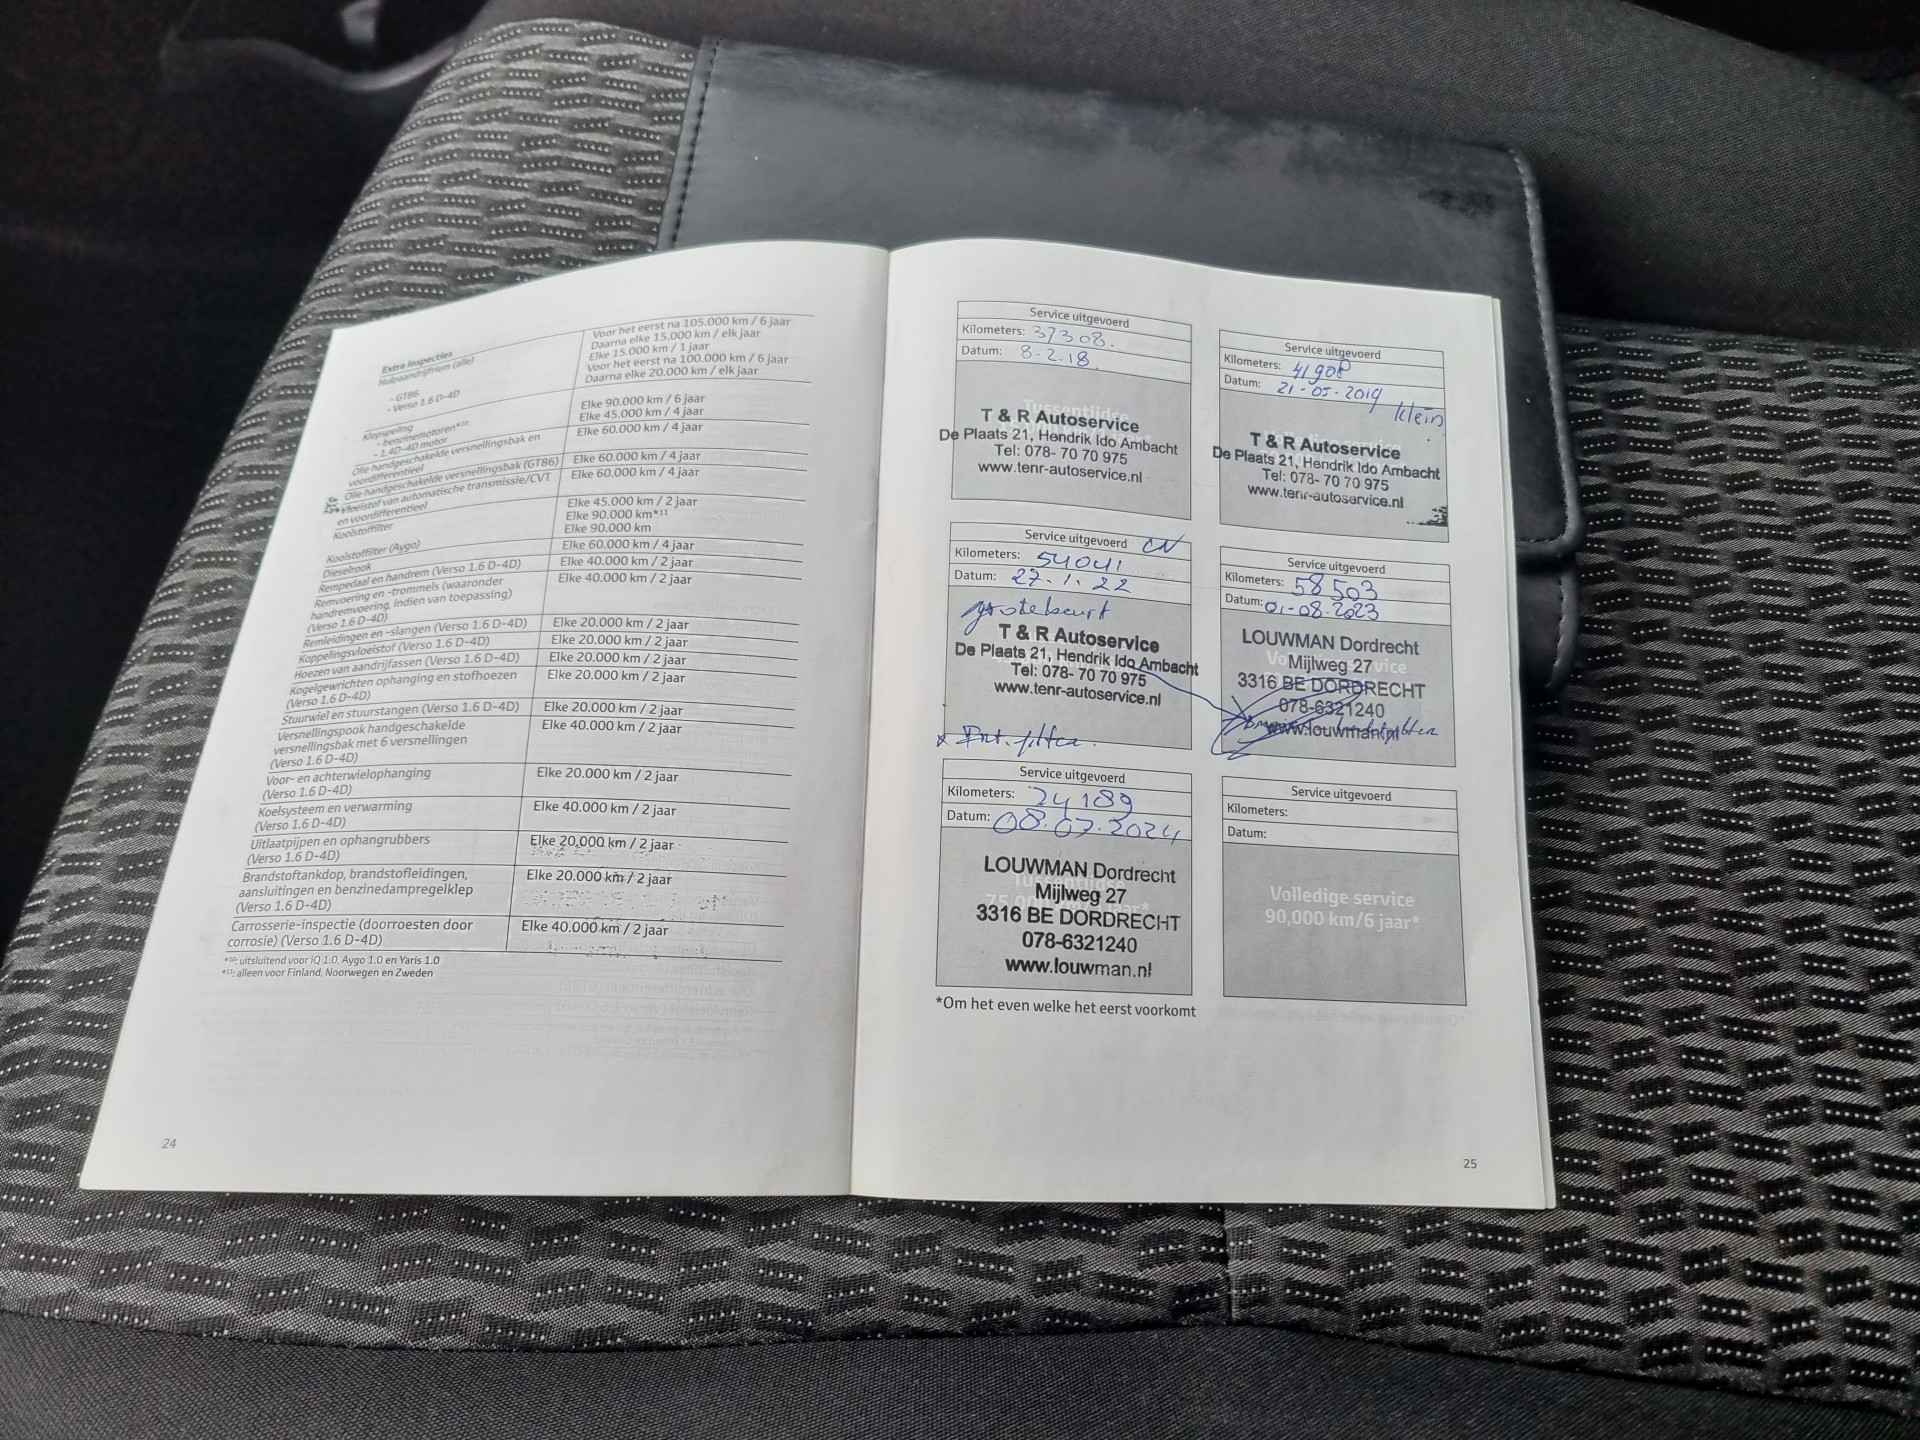 Extra inspecties
Halpaandrijfriem (alle)
Voor het eerst na 105.000 km / 6 jaar
Daarna elke 15.000 km / elk jaar
- GT86
Elke 15.000 km / 1 jaar
- Verso 1.6 D-4D
Voor het eerst na 100.000 km / 6 jaar
Daarna elke 20.000 km / elk jaar
Klepspeling
- benzinemotoren*¹⁰
Elke 90.000 km / 6 jaar
- 1.4D-4D motor
Elke 45.000 km / 4 jaar
Olie handgeschakelde versnellingsbak en
voordifferentieel
Elke 60.000 km / 4 jaar
Olie handgeschakelde versnellingsbak (GT86)
Elke 60.000 km / 4 jaar
Vloeistof van automatische transmissie/CVT
en voordifferentieel
Elke 60.000 km / 4 jaar
Koolstoffilter
Elke 45.000 km / 2 jaar
Elke 90.000 km*¹¹
Koolstoffilter (Aygo)
Elke 90.000 km
Dieselrook
Elke 60.000 km / 4 jaar
Rempedaal en handrem (Verso 1.6 D-4D)
Elke 40.000 km / 2 jaar
Remvoering en -trommels (waaronder
handremvoering, indien van toepassing)
(Verso 1.6 D-4D)
Elke 40.000 km / 2 jaar
Remleidingen en -slangen (Verso 1.6 D-4D)
Elke 20.000 km / 2 jaar
Koppelingsvloeistof (Verso 1.6 D-4D)
Elke 20.000 km / 2 jaar
Hoezen van aandrijfassen (Verso 1.6 D-4D)
Elke 20.000 km / 2 jaar
Kogelgewrichten ophanging en stofhoezen
(Verso 1.6 D-4D)
Elke 20.000 km / 2 jaar
Stuurwiel en stuurstangen (Verso 1.6 D-4D)
Elke 20.000 km / 2 jaar
Versnellingspook handgeschakelde
versnellingsbak met 6 versnellingen
(Verso 1.6 D-4D)
Elke 40.000 km / 2 jaar
Voor- en achterwielophanging
(Verso 1.6 D-4D)
Elke 20.000 km / 2 jaar
Koelsysteem en verwarming
(Verso 1.6 D-4D)
Elke 40.000 km / 2 jaar
Uitlaatpijpen en ophangrubbers
(Verso 1.6 D-4D)
Elke 20.000 km / 2 jaar
Brandstoftankdop, brandstofleidingen,
aansluitingen en benzinedampregelklep
(Verso 1.6 D-4D)
Elke 20.000 km / 2 jaar
Carrosserie-inspectie (doorroesten door
corrosie) (Verso 1.6 D-4D)
Elke 40.000 km / 2 jaar
*¹⁰: uitsluitend voor iQ 1.0, Aygo 1.0 en Yaris 1.0
*¹¹: alleen voor Finland, Noorwegen en Zweden
24
Service uitgevoerd
Kilometers: 37308.
Datum: 8.2.18.
Tussentijdse
T & R Autoservice
De Plaats 21, Hendrik Ido Ambacht
Tel: 078- 70 70 975
www.tenr-autoservice.nl
Service uitgevoerd
Kilometers: 41908
Datum: 21-05-2019
klein
T & R Autoservice
De Plaats 21, Hendrik Ido Ambacht
Tel: 078- 70 70 975
www.tenr-autoservice.nl
Service uitgevoerd CN
Kilometers: 54041
Datum: 27.1.22
grotebeurt
T & R Autoservice
De Plaats 21, Hendrik Ido Ambacht
Tel: 078- 70 70 975
www.tenr-autoservice.nl
x Int. filter.
Service uitgevoerd
Kilometers: 58503
Datum: 01-08-2023
LOUWMAN Dordrecht
Mijlweg 27
3316 BE DORDRECHT
078-6321240
www.louwman.nl
Service uitgevoerd
Kilometers: 74189
Datum: 08.07.2024
LOUWMAN Dordrecht
Mijlweg 27
3316 BE DORDRECHT
078-6321240
www.louwman.nl
Service uitgevoerd
Kilometers:
Datum:
Volledige service
90,000 km/6 jaar*
*Om het even welke het eerst voorkomt
25